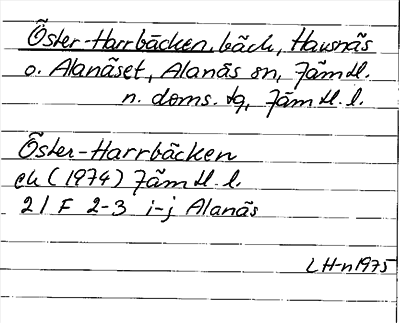 Öster-Harrbäcken, bäck, Havsnäs
o. Alanäset, Alanäs sn, Jämtl.
n. doms. dg, Jämtl. l.
Öster-Harrbäcken
ek (1974) Jämtl. l.
21 F 2-3 i-j Alanäs
LH-n 1975